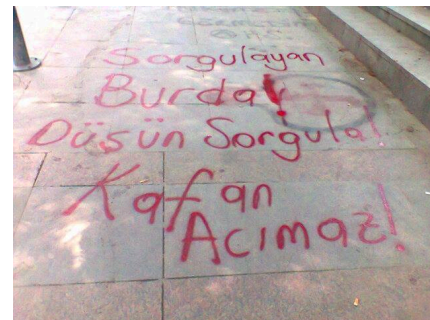 Sorgulayan
Burda!
Düsün Sorgula!
Kafan
Acımaz!